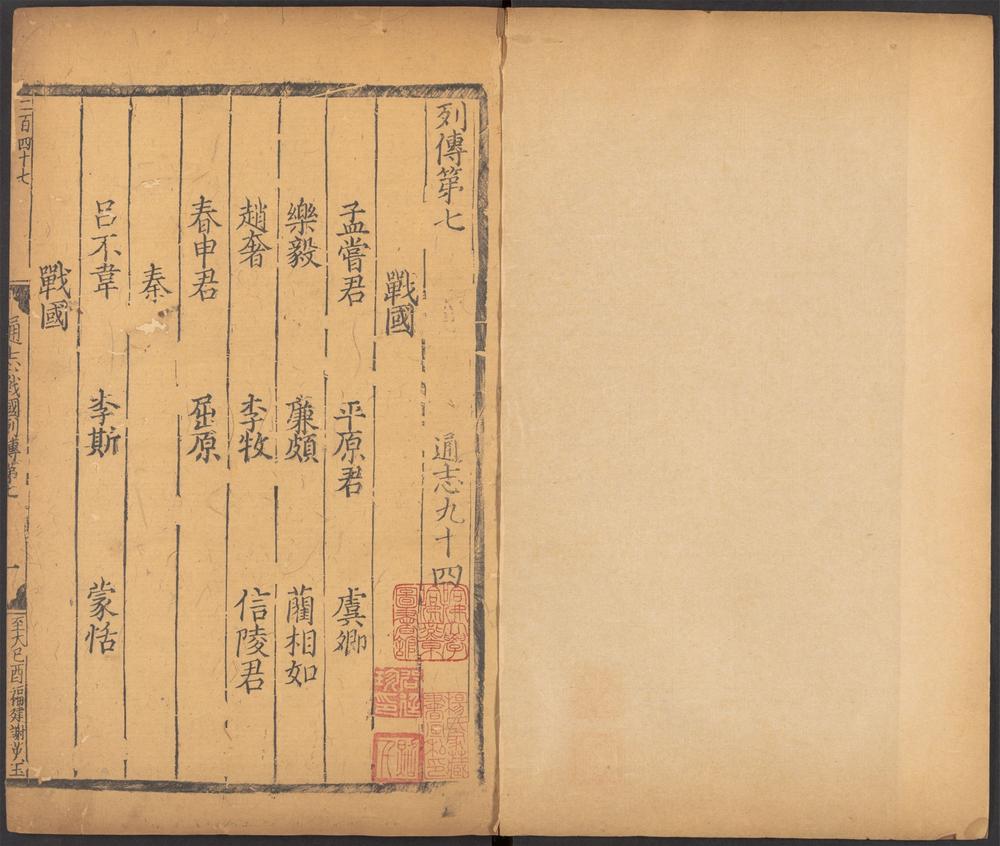 列傳第七 通志九十四
戰國
孟嘗君 平原君 虞卿
樂毅 廉頗 藺相如
趙奢 李牧 信陵君
春申君 屈原
秦
呂不韋 李斯 蒙恬
戰國
二百四十七 通志戰國列傳第七 一 至大己酉福建謝